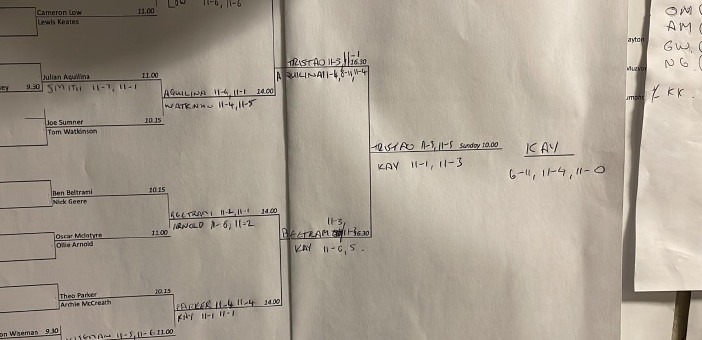 Cameron Low 11.00
Lewis Keates
Julian Aquilina 11.00
9.30 SMITH 11-7, 11-1
Joe Sumner 10.15
Tom Watkinson
Ben Beltrami 10.15
Nick Geere
Oscar McIntyre 11.00
Ollie Arnold
Theo Parker 10.15
Archie McCreath
on Wiseman 9.30
11-5, 11-6 11.00
AQUILINA 11-4, 11-1 14.00
11-4, 11-5
BELTRAMI 11-2, 11-1 14.00
ARNOLD 11-6, 11-2
PARKER 11-4 11-4 14.00
KAY 11-1 11-1
TRISTAO 11-5, 11-1 16.30
AQUILINA 11-6, 8-11, 11-4
11-3,
BELTRAMI
KAY 11-6, 5.
TRISTAO 11-5, 11-5 Sunday 10.00
KAY 11-1, 11-3
KAY
6-11, 11-4, 11-0
OM
AM
GW
NG
KK